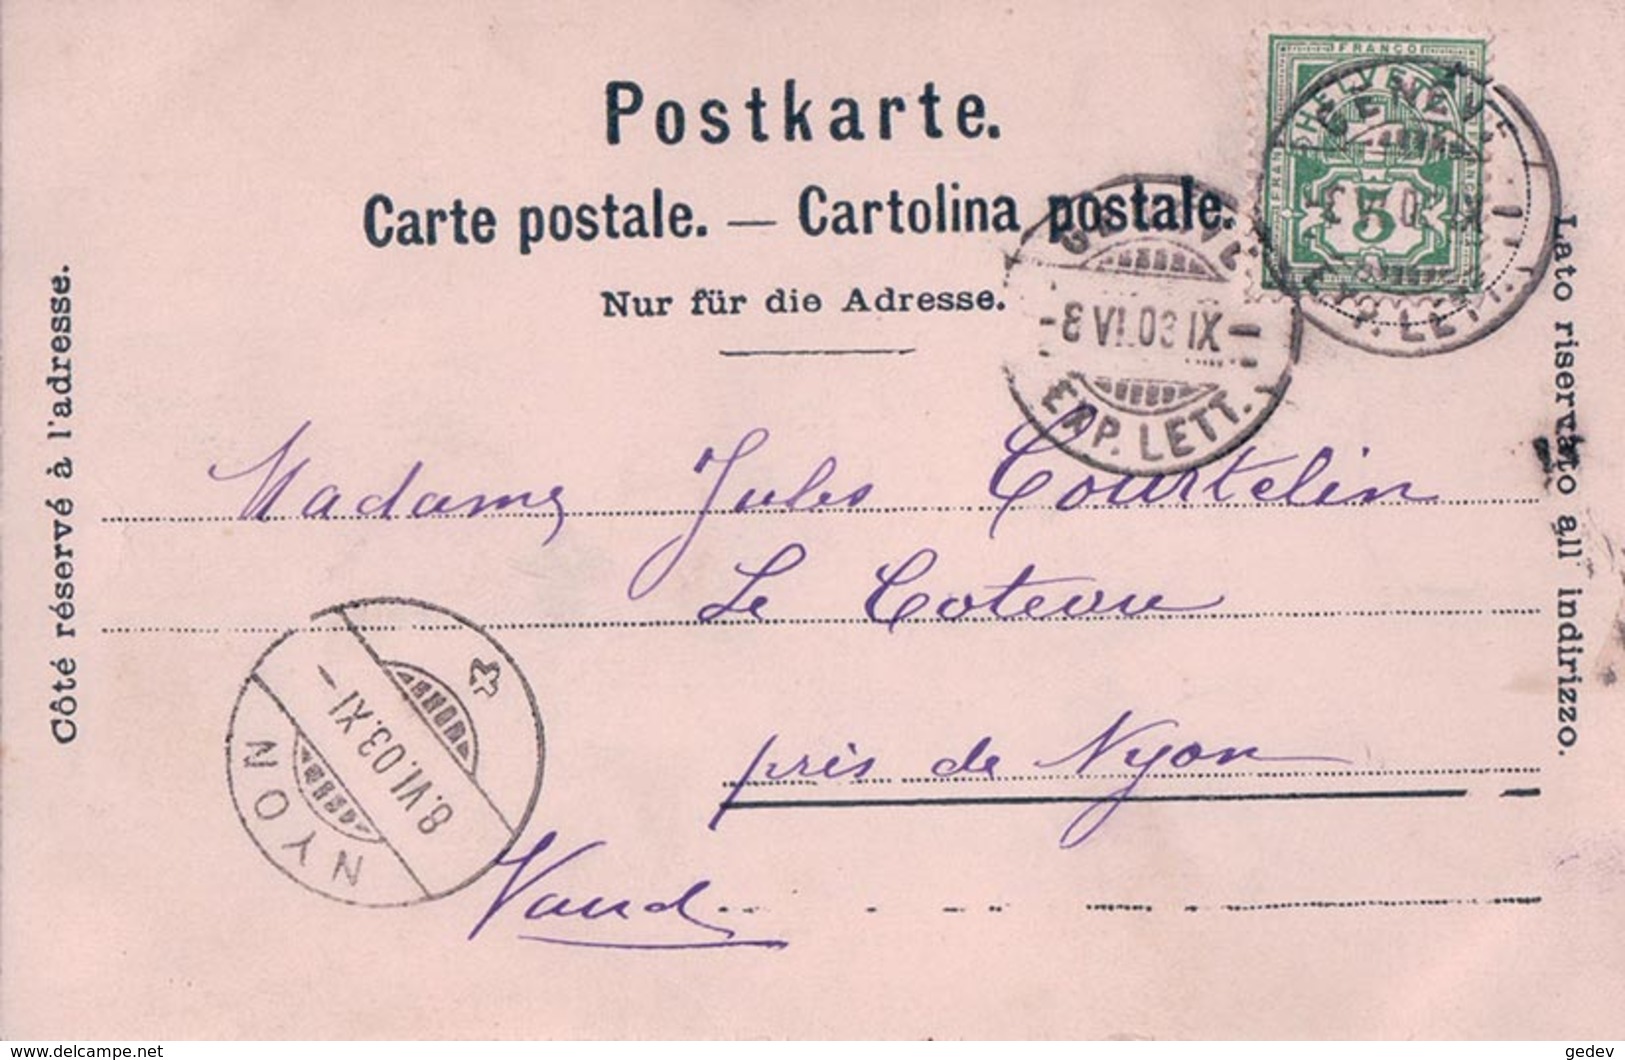 Postkarte.
Carte postale. — Cartolina postale.
Nur für die Adresse.
Côté réservé à l'adresse.
Lato riservato all' indirizzo.
FRANCO
HELVETIA
5
GENÈVE
-8 VI.03 XI-
EXP. LETT.
GENÈVE
EXP. LETT.
Madame Jules Courtelin
Le Coteau
près de Nyon
Vaud
NYON
8.VI.03.XI-
http://www.delcampe.net
gedev